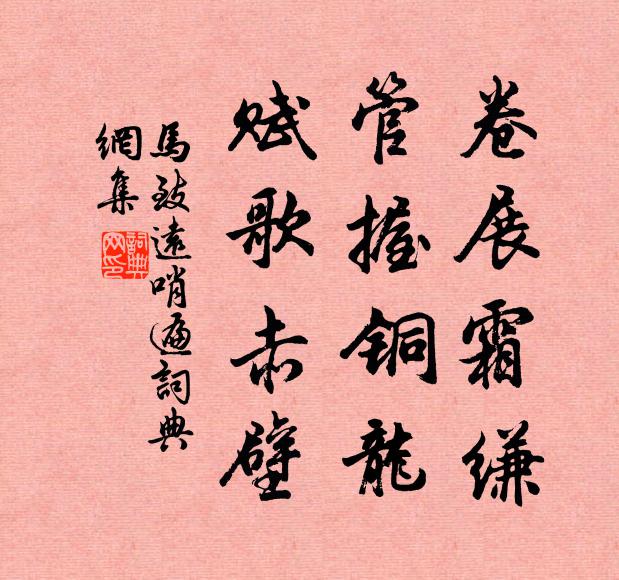 卷展霜縑
管握铜龍
赋歌赤壁
馬致遠哨遍詞典
網集
詞典
网印